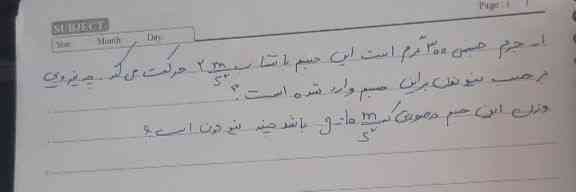 Page:
SUBJECT:
Year: Month: Day:
از جرم جسمی ۳۰۰ گرم است این جسم با شتاب ۲ m/s² حرکت می‌کند چه نیرویی
بر حسب نیوتن براین جسم وارد شده است؟
وزن این جسم درصورتی که g=10 m/s² باشد چند نیوتن است؟